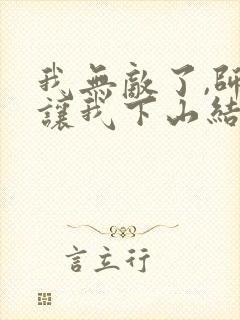 我無敵了,師
讓我下山結
言立行